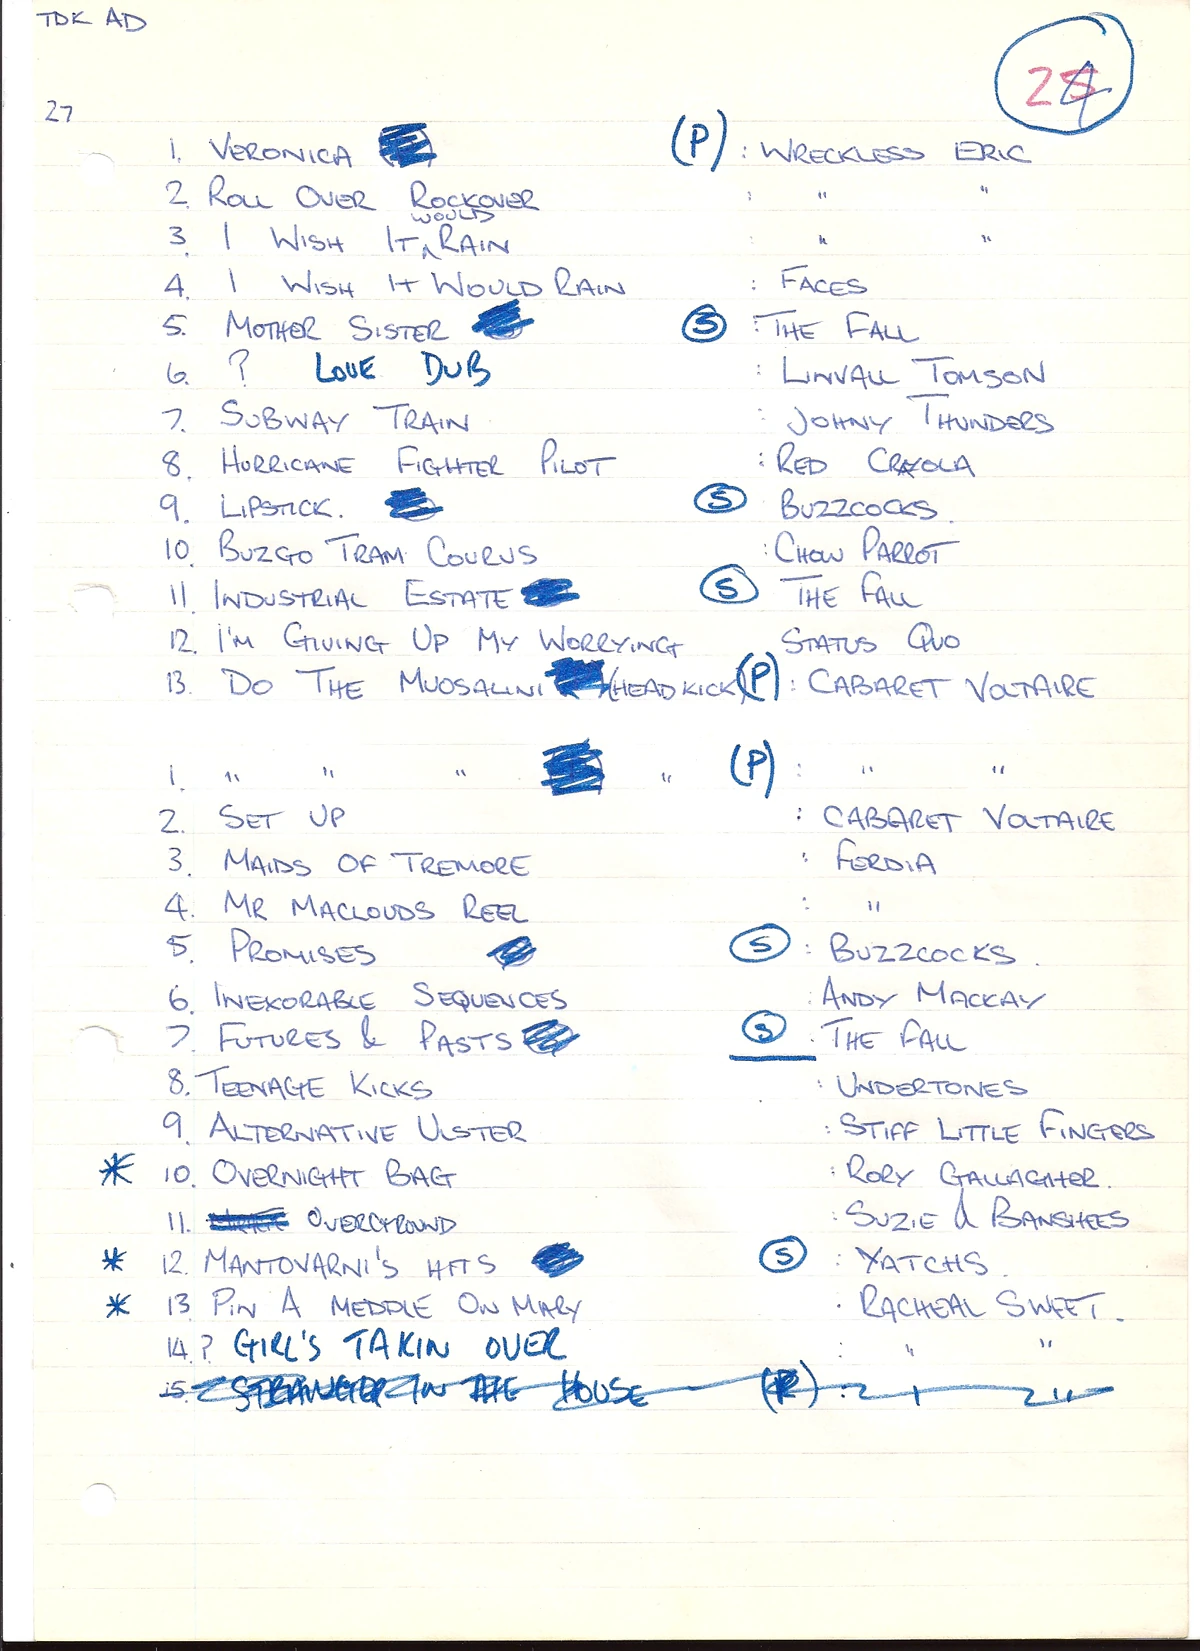 TDK AD
24
27
1. VERONICA (P) : WRECKLESS ERIC
2. ROLL OVER ROCKOVER : " "
3. I WISH IT WOULD RAIN : " "
4. I WISH IT WOULD RAIN : FACES
5. MOTHER SISTER S : THE FALL
6. ? LOVE DUB : LINVALL TOMSON
7. SUBWAY TRAIN : JOHNY THUNDERS
8. HURRICANE FIGHTER PILOT : RED CRAYOLA
9. LIPSTICK. S BUZZCOCKS.
10. BUZGO TRAM COURUS : CHOW PARROT
11. INDUSTRIAL ESTATE S THE FALL
12. I'M GIVING UP MY WORRYING STATUS QUO
13. DO THE MUOSALINI (HEADKICK) (P) : CABARET VOLTAIRE
1. " " " " (P) : " "
2. SET UP : CABARET VOLTAIRE
3. MAIDS OF TREMORE : FERDIA
4. MR MACLOUDS REEL : "
5. PROMISES S : BUZZCOCKS.
6. INEXORABLE SEQUENCES : ANDY MACKAY
7. FUTURES & PASTS S : THE FALL
8. TEENAGE KICKS : UNDERTONES
9. ALTERNATIVE ULSTER : STIFF LITTLE FINGERS
* 10. OVERNIGHT BAG : RORY GALLAGHER.
11. OVERGROUND : SUZIE & BANSHEES
* 12. MANTOVARNI'S HITS S : YATCHS.
* 13. PIN A MEDDLE ON MARY . RACHEAL SWEET.
14. ? GIRL'S TAKIN OVER : " "
15. STRANGER IN THE HOUSE